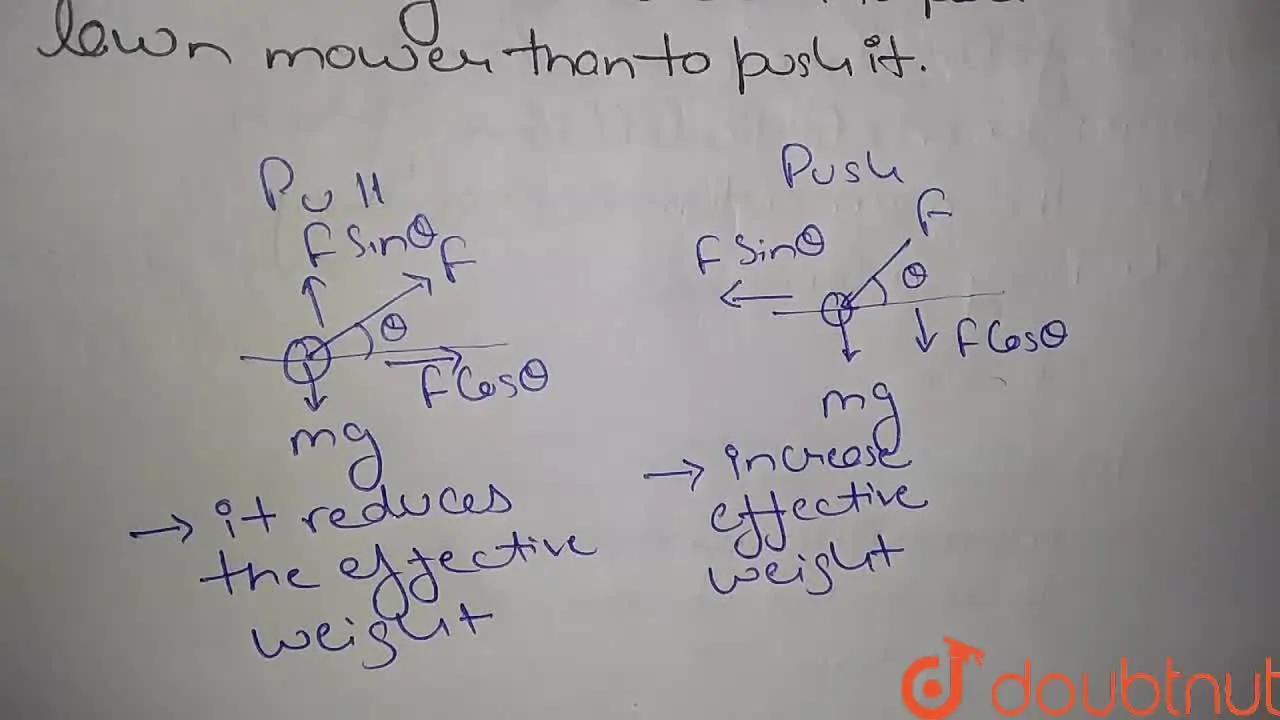 lawn mower than to push it.
Pull
F Sinθ
F
θ
F Cosθ
mg
→ it reduces
the effective
weight
Push
F
F Sinθ
θ
F Cosθ
mg
→ increase
effective
weight
doubtnut